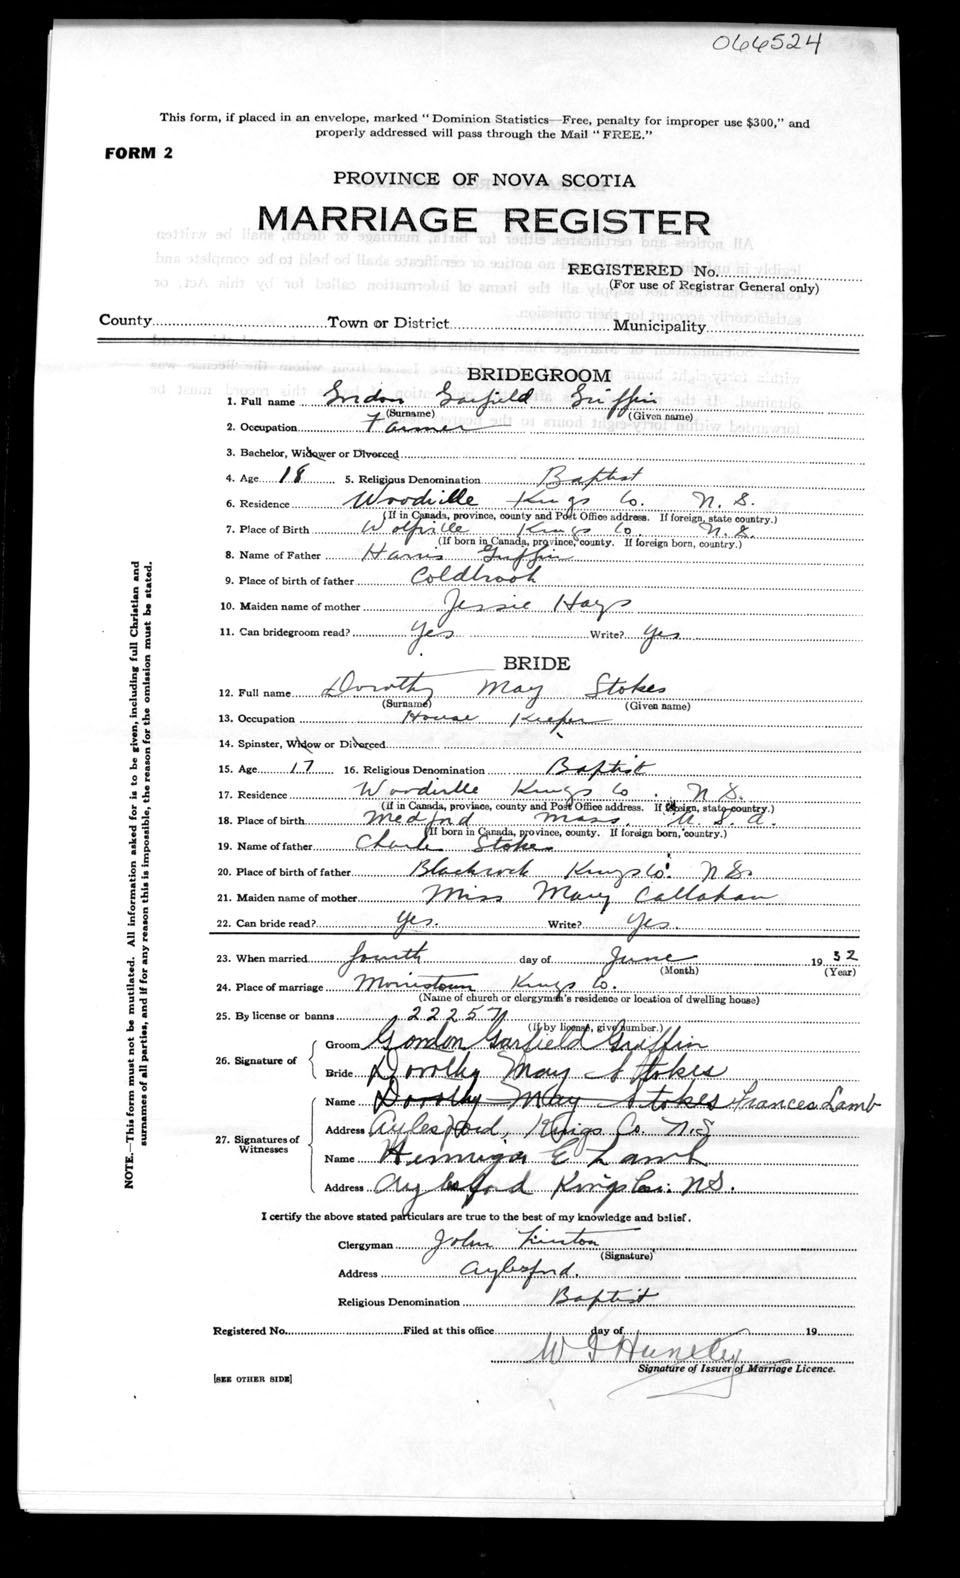 066524
This form, if placed in an envelope, marked "Dominion Statistics—Free, penalty for improper use $300," and
properly addressed will pass through the Mail "FREE."
FORM 2
PROVINCE OF NOVA SCOTIA
MARRIAGE REGISTER
REGISTERED No.
(For use of Registrar General only)
County Town or District Municipality
BRIDEGROOM
1. Full name Gordon Garfield Griffin
(Surname) (Given name)
2. Occupation Farmer
3. Bachelor, Widower or Divorced
4. Age 18 5. Religious Denomination Baptist
6. Residence Woodville Kings Co. N. S.
(If in Canada, province, county and Post Office address. If foreign, state country.)
7. Place of Birth Wolfville Kings Co. N. S.
(If born in Canada, province, county. If foreign born, country.)
8. Name of Father Harris Griffin
9. Place of birth of father Coldbrook
10. Maiden name of mother Jessie Hays
11. Can bridegroom read? Yes Write? Yes
BRIDE
12. Full name Dorothy May Stokes
(Surname) (Given name)
13. Occupation House Keeper
14. Spinster, Widow or Divorced
15. Age 17 16. Religious Denomination Baptist
17. Residence Woodville Kings Co. N S.
(If in Canada, province, county and Post Office address. If foreign, state country.)
18. Place of birth Medford Mass. U. S. A.
(If born in Canada, province, county. If foreign born, country.)
19. Name of father Charles Stokes
20. Place of father Blackrock Kings Co. N S.
21. Maiden name of mother Miss Mary Callahan
22. Can bride read? Yes. Write? Yes.
23. When married fourth day of June 19 32
(Month) (Year)
24. Place of marriage Morristown Kings Co.
(Name of church or clergyman's residence or location of dwelling house)
25. By license or banns 22257
(If by license, give number.)
26. Signature of
Groom Gordon Garfield Griffin
Bride Dorothy May Stokes
27. Signatures of Witnesses
Name Dorothy May Stokes Frances Lamb
Address Aylesford, Kings Co. N.S
Name E Lamb
Address Aylesford Kings Co. NS.
I certify the above stated particulars are true to the best of my knowledge and belief.
Clergyman John
(Signature)
Address Aylesford.
Religious Denomination Baptist
Registered No. Filed at this office day of 19
W I Huntley
Signature of Issuer of Marriage Licence.
[SEE OTHER SIDE]
NOTE.—This form must not be mutilated. All information asked for is to be given, including full Christian and
surnames of all parties, and if for any reason this is impossible, the reason for the omission must be stated.